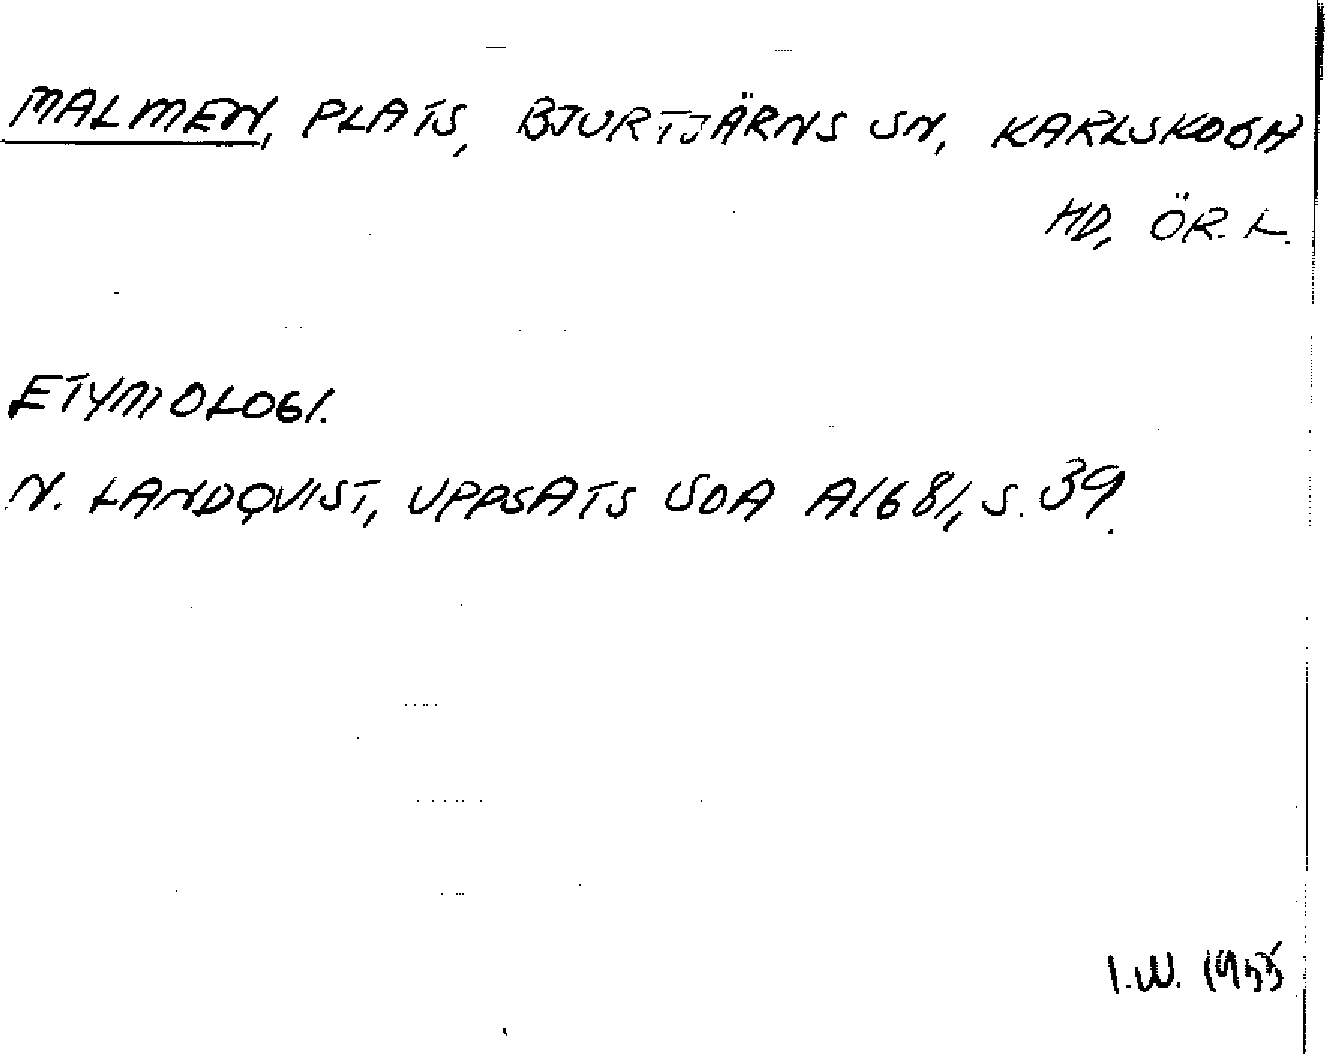 MALMEN, PLATS, BJURTJÄRNS SN, KARLSKOGA
HD, ÖR. L.
ETYMOLOGI.
N. LANDQVIST, UPPSATS SOA A1681, S. 39.
I.W. 1955